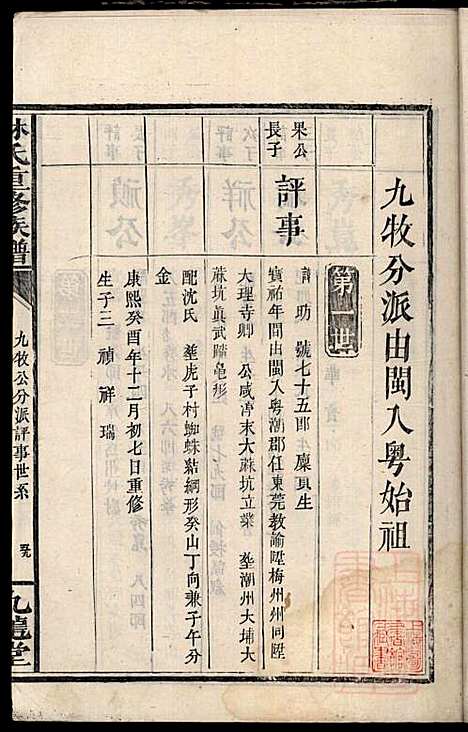 九牧分派由閩入粤始祖
第一世
果公
長子
評事
諱助 號七十五郎 廩貢生
寶祐年間由閩入粤潮郡任東莞教諭陞梅州州同陞
大理寺卿 公咸淳末大蔴坑立業 塟潮州大埔大
蔴坑眞武踏龟形
配沈氏 塟虎子村蜘蛛結網形癸山丁向兼子午分
金
康熙癸酉年十二月初七日重修
生子三 禎 祥 瑞
林氏重修族譜
九牧公分派評事世系
九龍堂